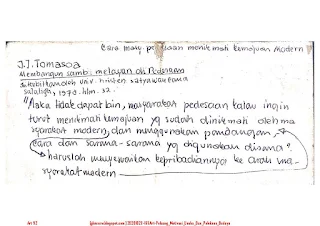 Cara masy. pedesaan menikmati kemajuan modern
J.J. Tomasoa
Membangun sambil melayan di Pedesaan
diterbitkan oleh univ. kristen satya wacana
salatiga, 1970. hlm. 32.
"Maka tidak dapat bin, masyarakat pedesaan kalau ingin
turut menikmati kemajuan yg sudah dinikmati oleh ma
syarakat modern, dan menggunakan pandangan,
cara dan sarana-sarana yg digunakan disana".
haruslah menyerantan kepribadiannya ke arah ma-
syarakat modern